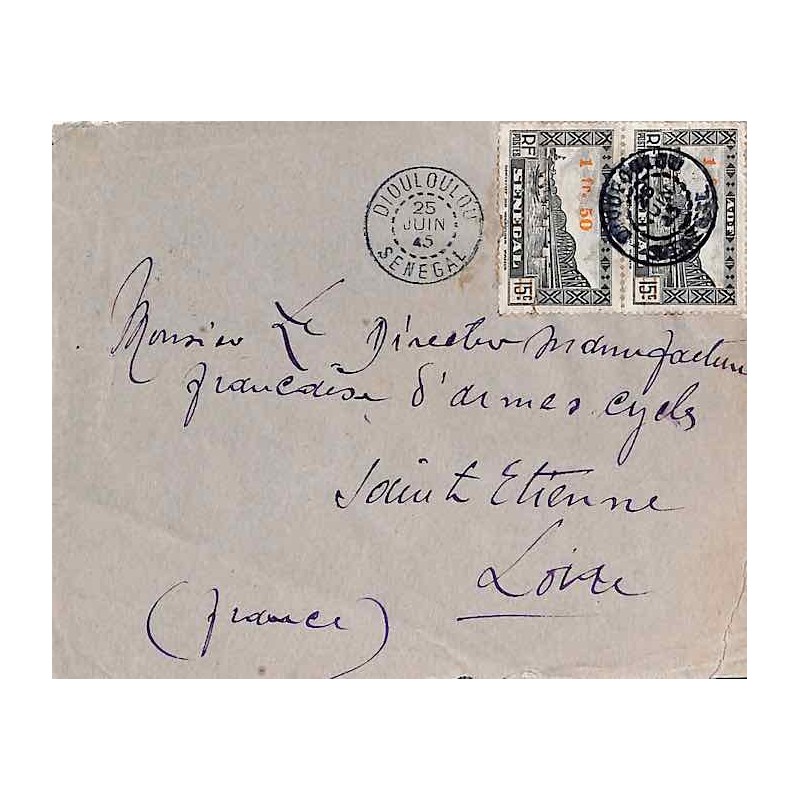 DIOULOULOU
25
JUIN
45
SENEGAL
RF
POSTES
SENEGAL
1 fr. 50
15c
RF
POSTES
15c
DIOULOULOU
JUIN
Monsieur Le Director Manufacture
francaise d'armes cycles
Saint Etienne
Loire
(france)